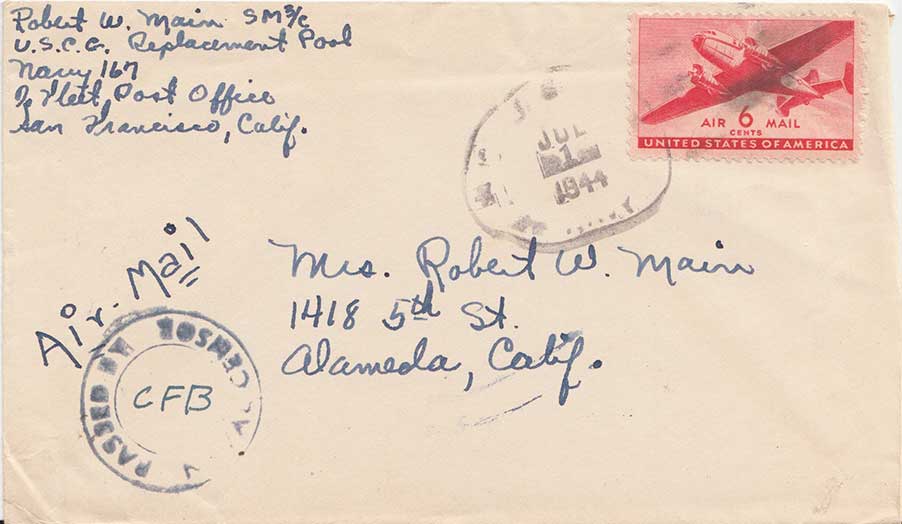 Robert W. Main SM3/c
U.S.C.G. Replacement Pool
Navy 167
℅ Fleet Post Office
San Francisco, Calif.
AIR 6 MAIL
CENTS
UNITED STATES OF AMERICA
JUL
1944
Air. Mail
Mrs. Robert W. Main
1418 5th St.
Alameda, Calif.
PASSED BY
CENSOR
CFB